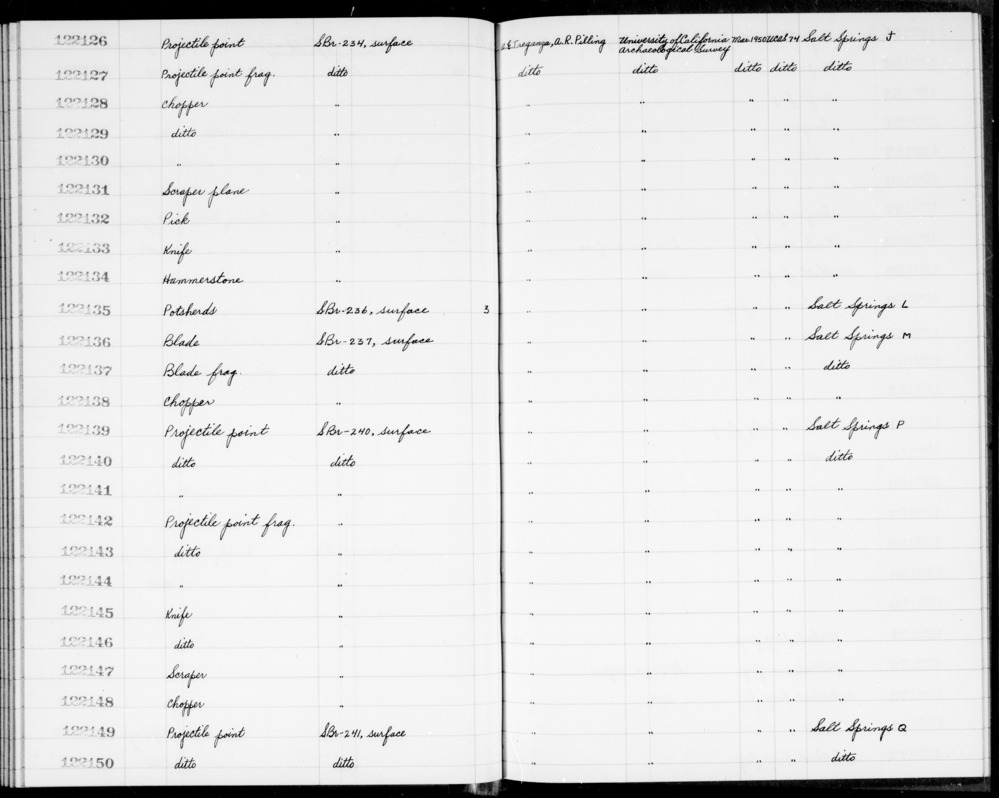 122126 Projectile point SBr-234, surface A.E. Treganza, A.R. Pilling University of California Archaeological Survey Mar. 1950 UCAS 74 Salt Springs J
122127 Projectile point frag. ditto ditto ditto ditto ditto ditto
122128 Chopper " " " " " "
122129 ditto " " " " " "
122130 " " " " " " "
122131 Scraper plane " " " " " "
122132 Pick " " " " " "
122133 Knife " " " " " "
122134 Hammerstone " " " " " "
122135 Potsherds SBr-236, surface 3 " " " " Salt Springs L
122136 Blade SBr-237, surface " " " " Salt Springs M
122137 Blade frag. ditto " " " " ditto
122138 Chopper " " " " " "
122139 Projectile point SBr-240, surface " " " " Salt Springs P
122140 ditto ditto " " " " ditto
122141 " " " " " " "
122142 Projectile point frag. " " " " " "
122143 ditto " " " " " "
122144 " " " " " " "
122145 Knife " " " " " "
122146 ditto " " " " " "
122147 Scraper " " " " " "
122148 Chopper " " " " " "
122149 Projectile point SBr-241, surface " " " " Salt Springs Q
122150 ditto ditto " " " " ditto